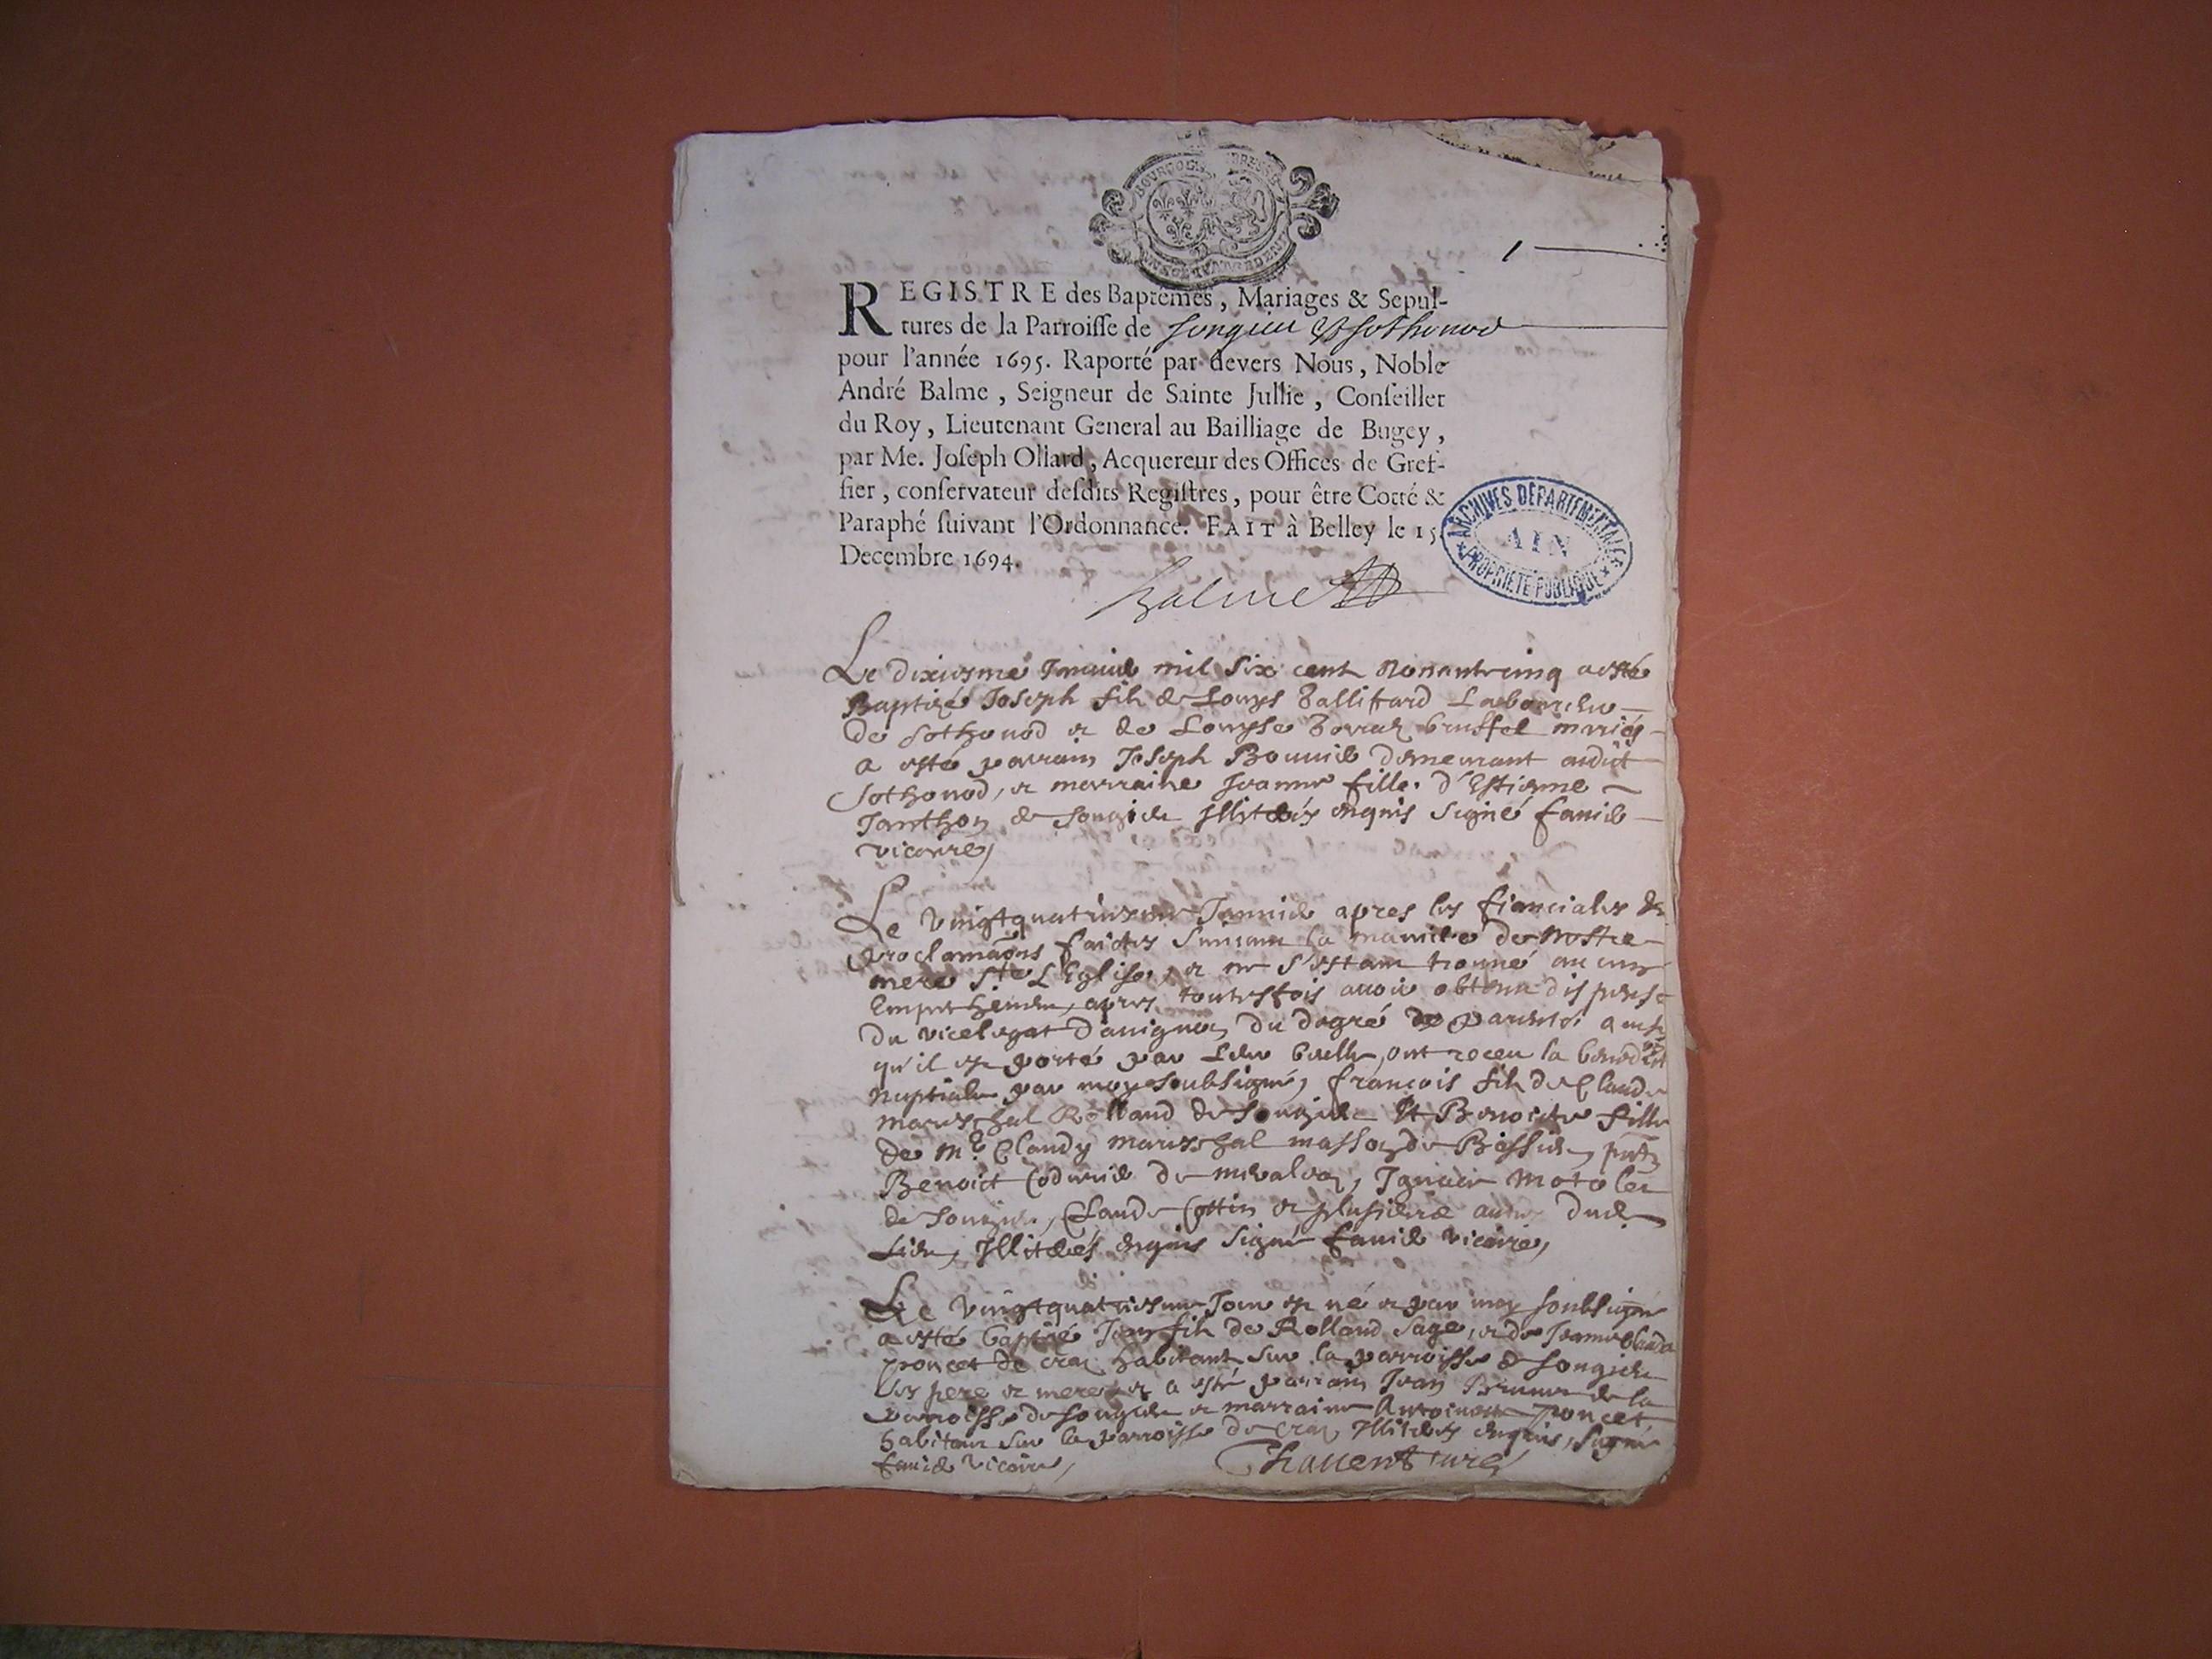 BOURGOGNE BRESSE
1
REGISTRE des Baptêmes, Mariages & Sepul-
tures de la Parroisse de Songieu & Sothonod
pour l'année 1695. Raporté par devers Nous, Noble
André Balme, Seigneur de Sainte Jullie, Conseiller
du Roy, Lieutenant General au Bailliage de Bugey,
par Me. Joseph Ollard, Acquereur des Offices de Gref-
fier, conservateur desdits Registres, pour être Cotté &
Paraphé suivant l'Ordonnance. FAIT à Belley le 15
Decembre 1694.
ARCHIVES DÉPARTEMENTALES
AIN
PROPRIÉTÉ PUBLIQUE
Balme
Le dixiesme Janvier mil six cent nonantecinq a esté
Baptizé Joseph fils de Louys Laboureur
de Sothonod et de Louyse mariés
a esté parrain Joseph Bouvier demeurant audit
Sothonod, et marraine Jeanne fille d'Estienne
Janthon de Songieu Illiterés enquis signé favier
vicaire,
Le vingtquatriesme Janvier apres les fianciales &
proclamaõns faictes suivant la maniere de Nostre
mere Ste L'Eglise, et ne s'estant trouvé aucun
Empechement, apres toutesfois avoir obtenu dispense
du vicelegat d'avignon du degré de parenté ainsi
qu'il est porté par leur bulle, ont receu la
nuptiale par moy soubsigné, françois fils de Claude
mareschal Rolland de Songieu Et Benoite fille
de Me Claudy mareschal masson de
Benoict de, Ignace
de Songieu, Claude Cottin et plusieurs autres dud
Lieu, Illiterés enquis signé favier vicaire,
Le vingtquatriesme Jour est né et par moy soubsigné
a esté baptisé Jean fils de Rolland Sage, et de Jeanne Clauda
poncet de habitants sur la parroisse de Songieu
Ses pere et mere et a esté parrain Jean de la
parroisse de Songieu et marraine Antoinette poncet
habitant sur la parroisse de Illiterés enquis, signé
favier vicaire,